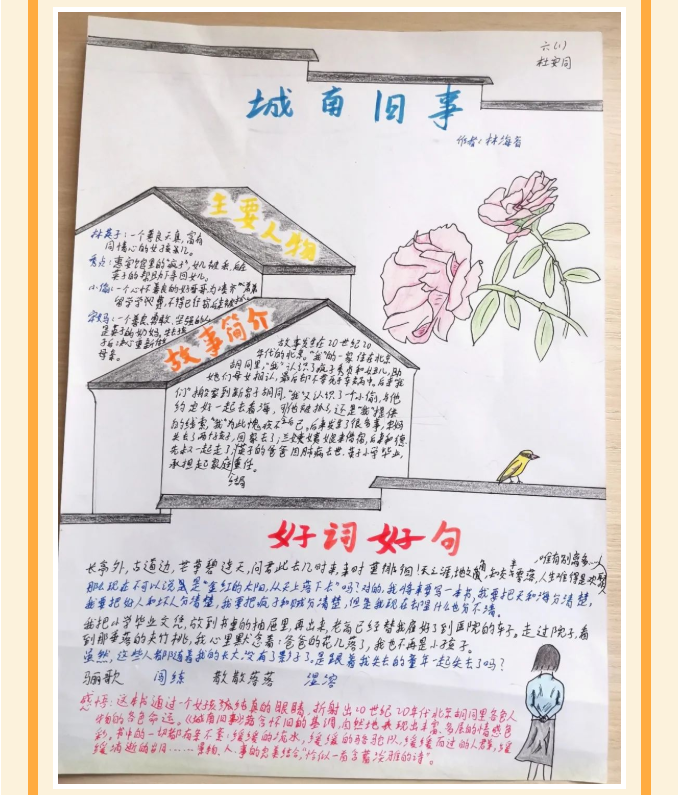 六(1)
杜安同
城南旧事
作者:林海音
主要人物
林英子:一个善良天真,富有
同情心的女孩儿。
秀贞:惠安馆里的"疯子",女儿被丢,后在
英子的帮助下寻回女儿。
小偷:一个心怀善良的好哥哥为凑齐弟弟
留学学费,不得已行窃后被
宋妈:一个善良,勇敢,坚强的
是英子的奶妈,
母亲。
故事简介
故事发生在20世纪20
年代的北京。"我"的一家住在北京
胡同里,"我"认识了疯子秀贞和妞儿,助
她们母女相认,最后却不幸死于车轮中。后来"我
们"搬家到新帘子胡同。"我"又认识了一个小偷,与他
约定好一起去看海,可他被抓了,还是"我"提供
的线索,"我"为此愧疚不已。后来发生了很多事,宋妈
失去了两个孩子,回家去了;兰姨娘来借宿,后来和德
先叔一起走了;英子的爸爸因肺病去世,英子小学毕业,
承担起家庭重任。
好词好句
长亭外,古道边,芳草碧连天,问君此去几时来,来时莫徘徊!天之涯,地之角,知交半零落,人生难得是欢聚,唯有别离多
那么现在不可以说就是"金红的太阳,从天上落下去"吗?对的,我将来要写一本书,我要把天和海分清楚,
我要把好人和坏人分清楚,我要把疯子和贼分清楚,但是我现在却是什么也分不清。
我把小学毕业文凭,放到书桌的抽屉里,再出来,老高已经替我雇好了到医院的车子。走过院子,看
到那垂落的夹竹桃,我心里默念着:爸爸的花儿落了,我也不再是小孩子。
虽然,这些人都随着我的长大没有了影子了。是跟着我失去的童年一起失去了吗?
骊歌 闯练 散散落落 湿溶
感悟:这本书通过一个女孩孤纯真的眼睛,折射出20世纪20年代北京胡同里各色人
物的各色命运。《城南旧事》蕴含怀旧的基调,自然地表现出丰富、多层的情感色
彩。书中的一切都有条不紊:缓缓的流水,缓缓的骆驼队,缓缓而过的人群,缓
缓消逝的岁月……景物、人、事的完美结合"恰似一首含蓄淡雅的诗"。